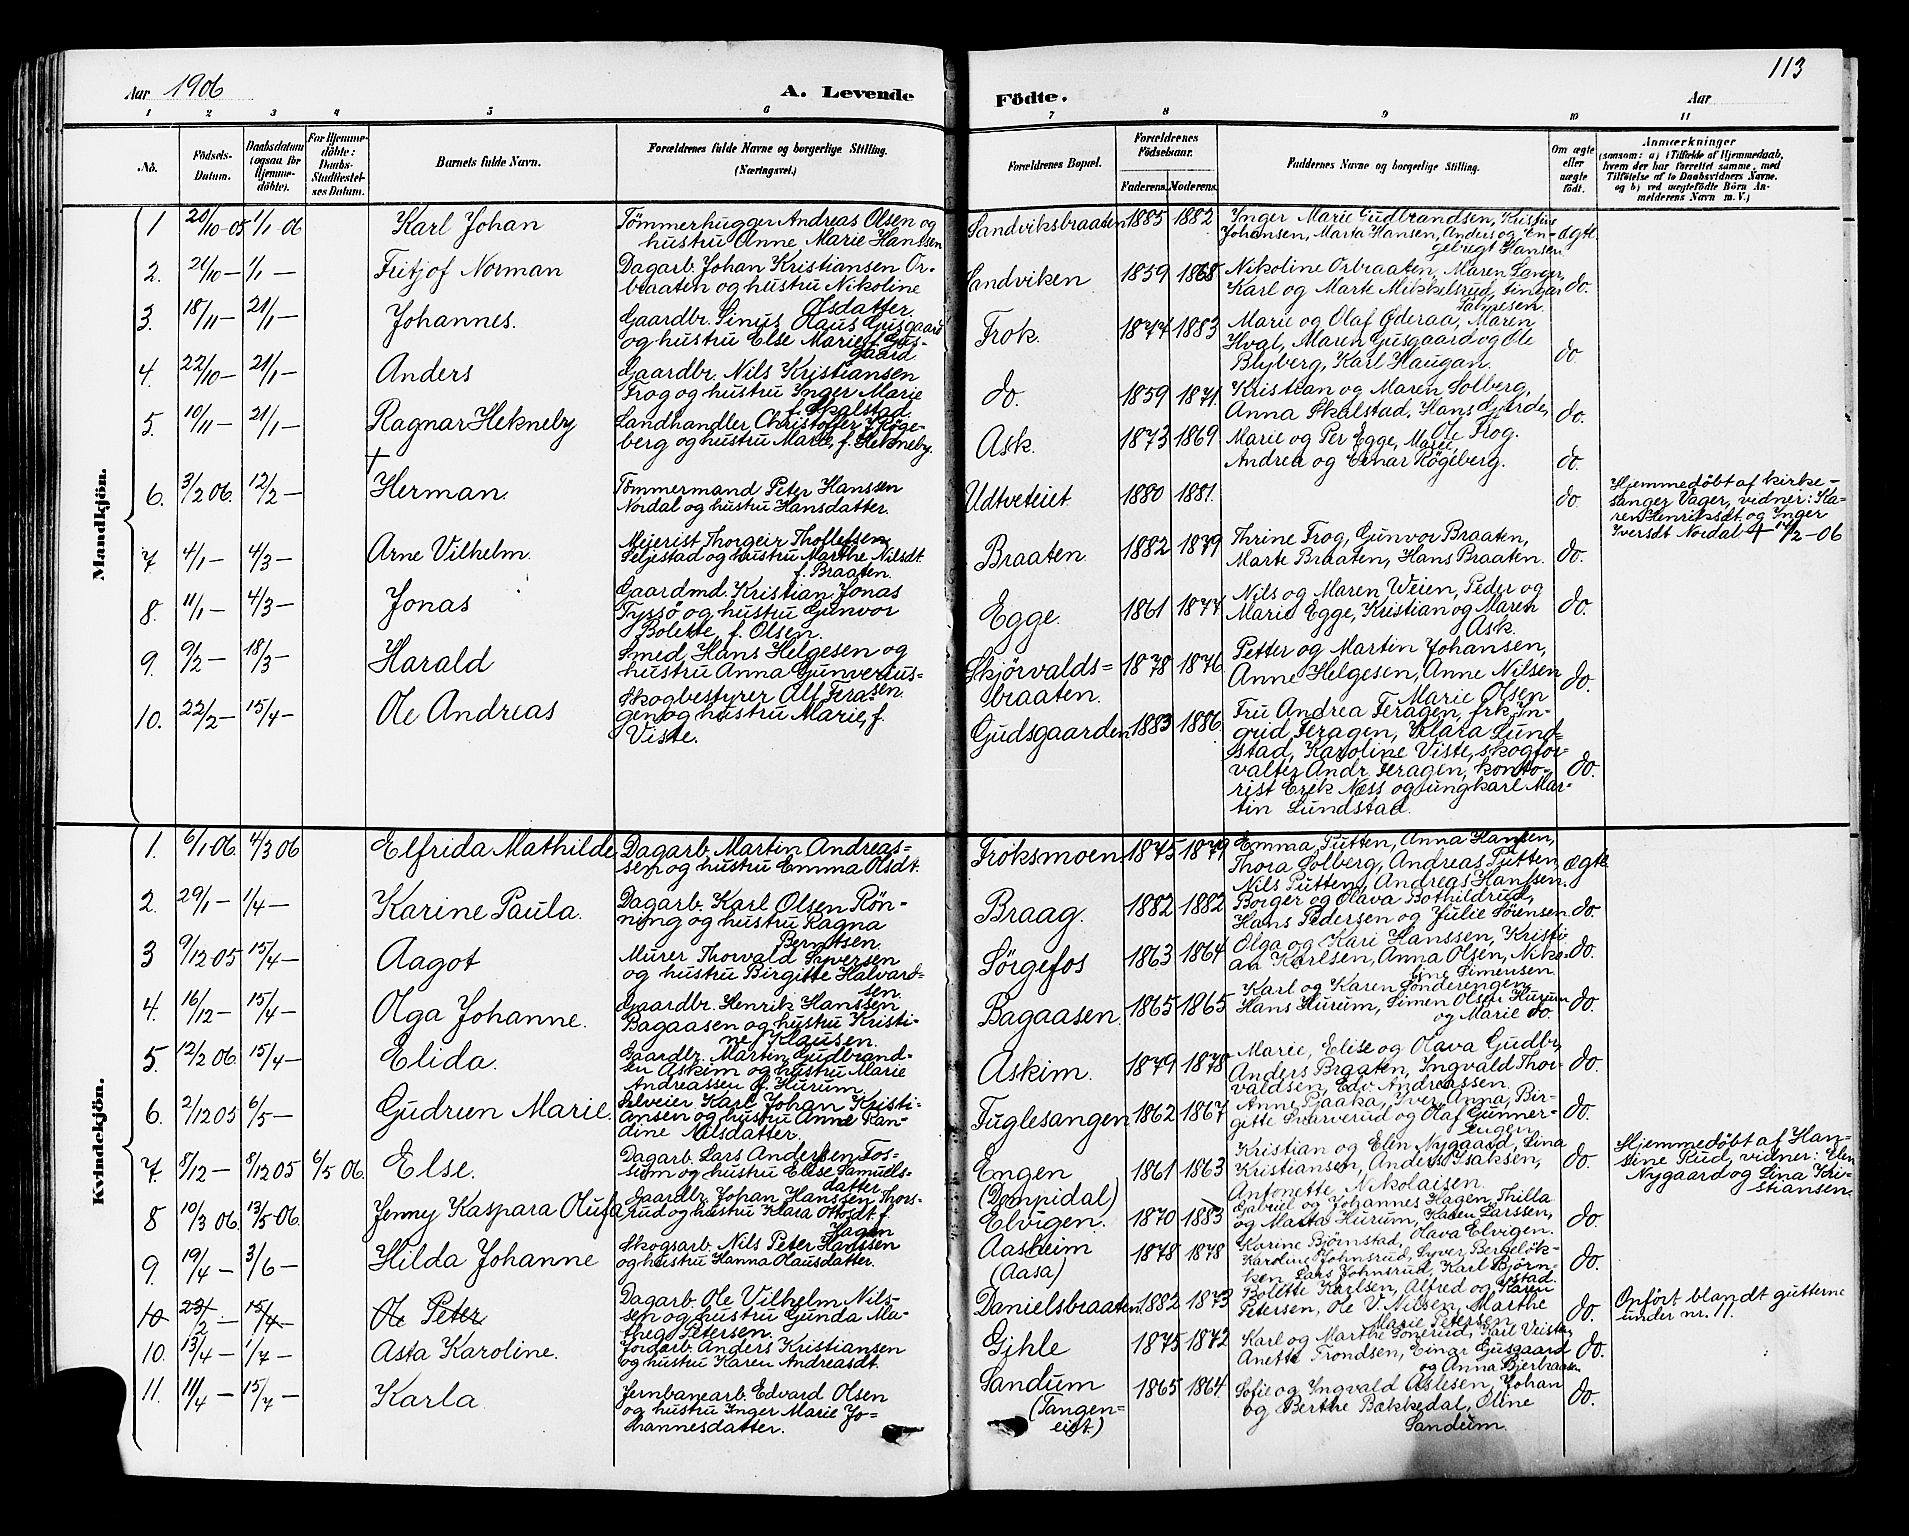 Aar 1906
A. Levende
Födte.
Aar
113
1 2 3 4 5 6 7 8 9 10 11
No.
Födsels-Datum.
Daabsdatum (ogsaa for Hjemmedöbte).
For Hjemmedöbte: Daabs-Stadfæstelses Datum.
Barnets fulde Navn.
Forældrenes fulde Navne og borgerlige Stilling. (Næringsvei.)
Forældrenes Bopæl.
Forældrenes Födselsaar.
Faderens. Moderens.
Faddernes Navne og borgerlige Stilling.
Om ægte eller uægte födt.
Anmærkninger
(saasom: a) i Tilfælde af Hjemmedaab, hvem der har forrettet samme, med Tilföielse af to Daabsvidners Navne. og b) ved uægtefödte Börn Anmelderens Navn m. V.)
Mandkjön.
1 20/10-05 1/1 06 Karl Johan Tømmerhugger Andreas Olsen og hustru Anne Marie Hansen Sandviksbraaten 1885 1882 Inger Marie Gudbrandsen, Kristine Johansen, Marta Hansen, Anders og Engebregt Hansen ægte
2. 21/10- 1/1- Fritjof Norman Dagarb. Johan Kristiansen Orbraaten og hustru Nikoline Olsdatter. Sandviken 1859 1868 Nikoline Orbraaten, Maren Langer, Karl og Marte Mikkelsrud, do.
3. 18/11- 21/1- Johannes. Gaardbr. Sinus Olaus Gusgaard og hustru Else Marie f. Gusgaard Frok. 1877 1883 Marie og Olaf Øderaa, Maren Hval, Maren Gusgaard og Ole Blyberg, Karl Haugan. do
4. 22/10- 21/1- Anders Gaardbr. Nils Kristiansen Frog og hustru Inger Marie f. Skalstad. do. 1859 1871. Kristian og Maren Solberg, Anna Skalstad, Hans Gjerde, Ole Frog. do.
5. 10/11- 21/1- Ragnar Hekneby Landhandler Christoffer Røgeberg og hustru Marie, f. Hekneby. Ask. 1873 1869 Marie og Per Egge, Marie, Andrea og Einar Røgeberg. do.
6. 3/2 06. 12/2- † Herman. Tømmermand Peter Hanssen Nordal og hustru Hansdatter. Udtveteiet 1880 1881. do Hjemmedøbt af kirkesanger Vager, vidner: Karen Henriksdt. og Inger Iversdt Nordal † 14/2-06
7. 4/1- 4/3- Arne Vilhelm. Meierist Thorgeir Thorleifsen Seljestad og hustru Marthe Nilsdt. f. Braaten. Braaten 1882 1879 Thrine Frog, Gunvor Braaten, Marte Braaten, Hans Braaten. do.
8. 11/1- 4/3- Jonas Gaardmd. Kristian Jonas Tyssø og hustru Gunvor Bolette f. Olsen. Egge. 1861 1877 Nils og Maren Weien, Peder og Marie Egge, Kristian og Maren Ask. do.
9. 9/2- 18/3- Harald Smed Hans Helgesen og hustru Anna Gunveriussen. Skjørvaldsbraaten. 1878 1876 Petter og Martin Johansen, Anne Helgesen, Anne Nilsen Marie Olsen do.
10. 22/2- 15/4- Ole Andreas Skogbestyrer Alf Feragen og hustru Marie, f. Viste. Gudsgaarden. 1883 1886. Fru Andrea Feragen, frk. Ingrid Feragen, Klara Lundstad, Karoline Viste, skogforvalter Andr. Feragen, kontorist Erik Næss og ungkarl Martin Lundstad. do.
Kvindekjön.
1. 6/1 06. 4/3 06 Elfrida Mathilde Dagarb. Martin Andreassen og hustru Emma Olsdt. Froksmoen 1875 1879 Emma Putten, Anna Hansen, Thora Solberg, Andreas Putten, Nils Putten, Andreas Hansen. ægte
2. 29/1- 1/4- Karine Paula. Dagarb. Karl Olsen Rönning og hustru Ragna Berntsen. Braag. 1882 1882 Borger og Olava Bothildrud, Hans Pedersen og Julie Sørensen. do.
3 9/12 05 15/4- Aagot Murer Thorvald Syversen og hustru Birgitte Halvardsen. Sørgefos 1863 1864 Olga og Kari Hanssen, Kristian Karlsen, Anna Olsen, Nikoline Simensen. do.
4. 16/12- 15/4- Olga Johanne. Gaardbr. Henrik Hanssen Bagaasen og hustru Kristine Klausen. Bagaasen. 1865 1865 Karl og Karen Sønderengen, Hans Hurum, Simen Olsen Hurum og Marie do. do.
5. 12/2 06. 15/4- Elida. Gaardbr. Martin Gudbrandsen Askim og hustru Marie Andreassen f. Hurum. Askim. 1879 1878 Marie, Elise og Olava Gudbr., Anders Braaten, Ingvald Thorvaldsen, Edv. Andreassen. do.
6. 2/12 05 6/5- Gudrun Marie. Karl Johan Kristiansen og hustru Anne Randine Nilsdatter. Fuglesangen 1862 1867 Anne Pjaaka, Iver, Anna, Birgitte Svarverud og Olaf Gunnerengen. do.
7. 8/12- 8/12 05 6/5 06. Else. Dagarb. Lars Andersen Fossum og hustru Else Samuelsdatter Engen (Dompidal) 1861 1863 Kristian og Elen Nygaard, Lina Kristiansen, Anders Isaksen, Antonette Nikolaisen. do. Hjemmedøbt af Hansine Rud, vidner: Elen Nygaard og Lina Kristiansen
8 10/3 06. 13/5 06. Jenny Kaspara Olufa Gaardbr. Johan Hanssen Thorsrud og hustru Klara Ottosdt. f. Hagen Elvigen. 1870 1883 Gabriel og Johannes Hagen, Thilla og Marta Hurum, Karen Larssen, Karine Bjørnstad, Olava Elvigen. do.
9. 19/4- 3/6- Hilda Johanne Skogsarb. Nils Peter Hanssen og hustru Hanna Olausdatter. Aasheim (Aasa) 1878 1878 Karoline Johnsrud, Syver Bergeløkken, Lars Johnsrud, Karl Bjørnstad. do.
10 23/2- 15/4- Ole Peter Dagarb. Ole Vilhelm Nilssen og hustru Gunda Mathea Petersen. Danielsbraaten. 1882 1873 Bolette Karlsen, Alfred og Karen Petersen, Ole V. Nilsen, Marthe Marie Petersen do. Opført blandt gutterne under nr. 11.
10. 13/4- 1/7- Asta Karoline. Jordarb. Anders Kristiansen og hustru Karen Andreasdt. Gihle 1875 1872 Karl og Marthe Gonerud, Karl Veista, Anette Trondsen, Einar Gusgaard og Anna Bjerkaasen do.
11. 11/4- 15/7- Karla Jernbanearb. Edvard Olsen og hustru Inger Marie Johannesdatter. Sandum (Tangeneigt.) 1865 1864. Sofie og Ingvald Aslesen, Johan og Berthe Bækkedal, Oline Sandum. do.